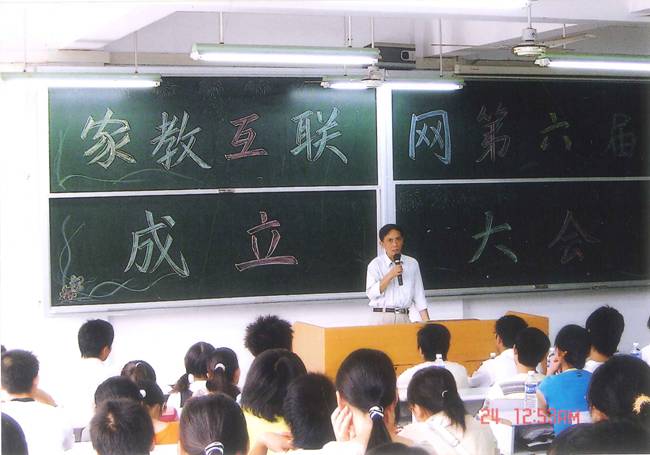 家教互联网第六届
成立大会
24 12:53AM